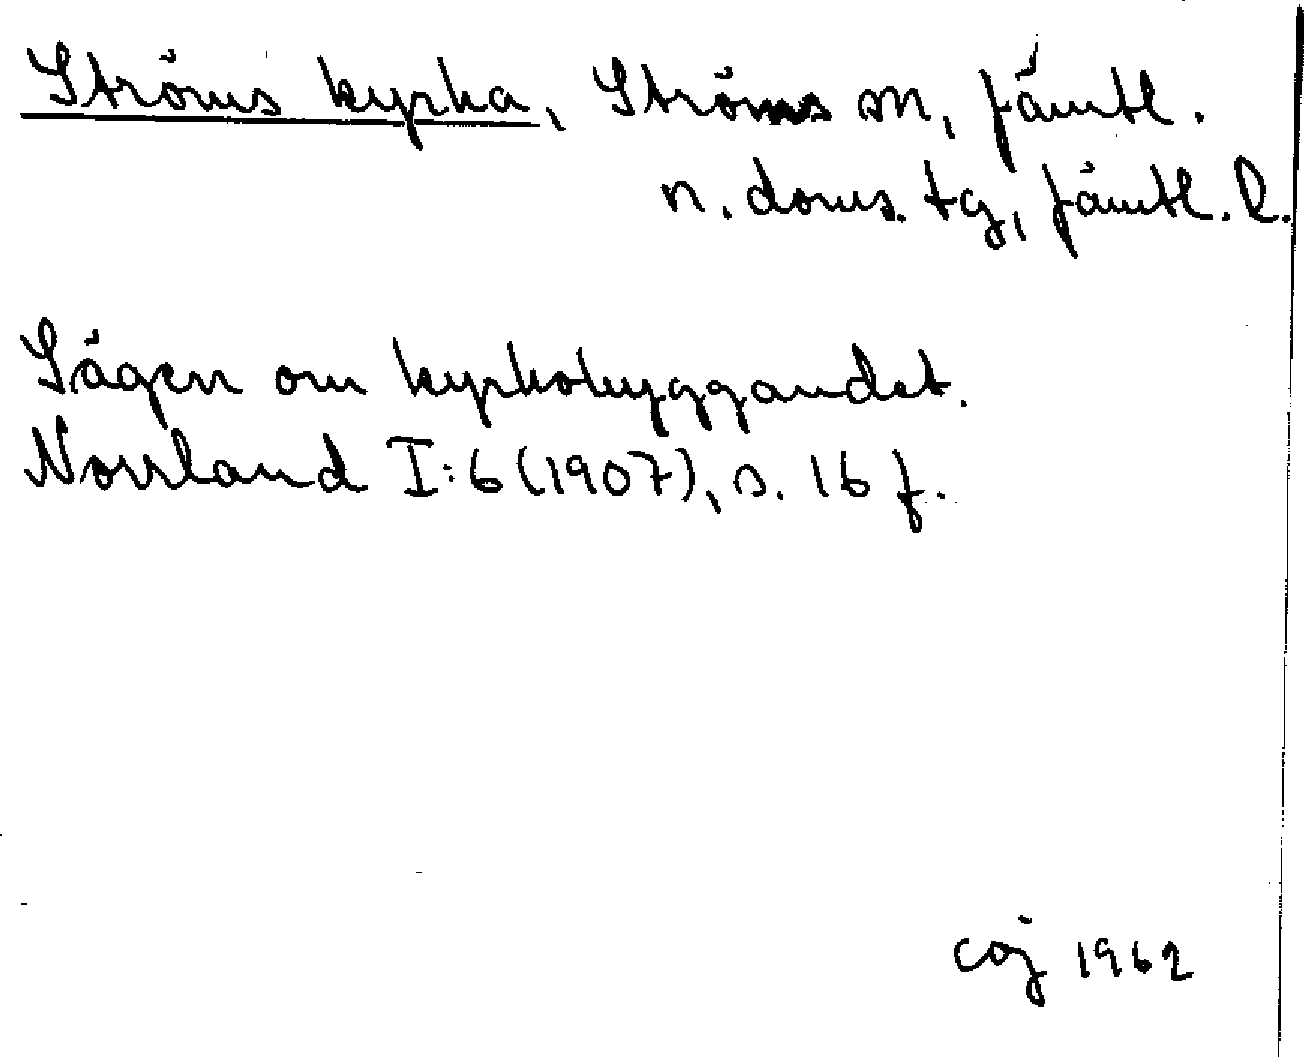 Ströms kyrka, Ströms sn, Jämtl.
n. doms. tg, Jämtl. l.
Sägen om kyrkobyggandet.
Norrland I:6 (1907), s. 16 f.
coj 1962